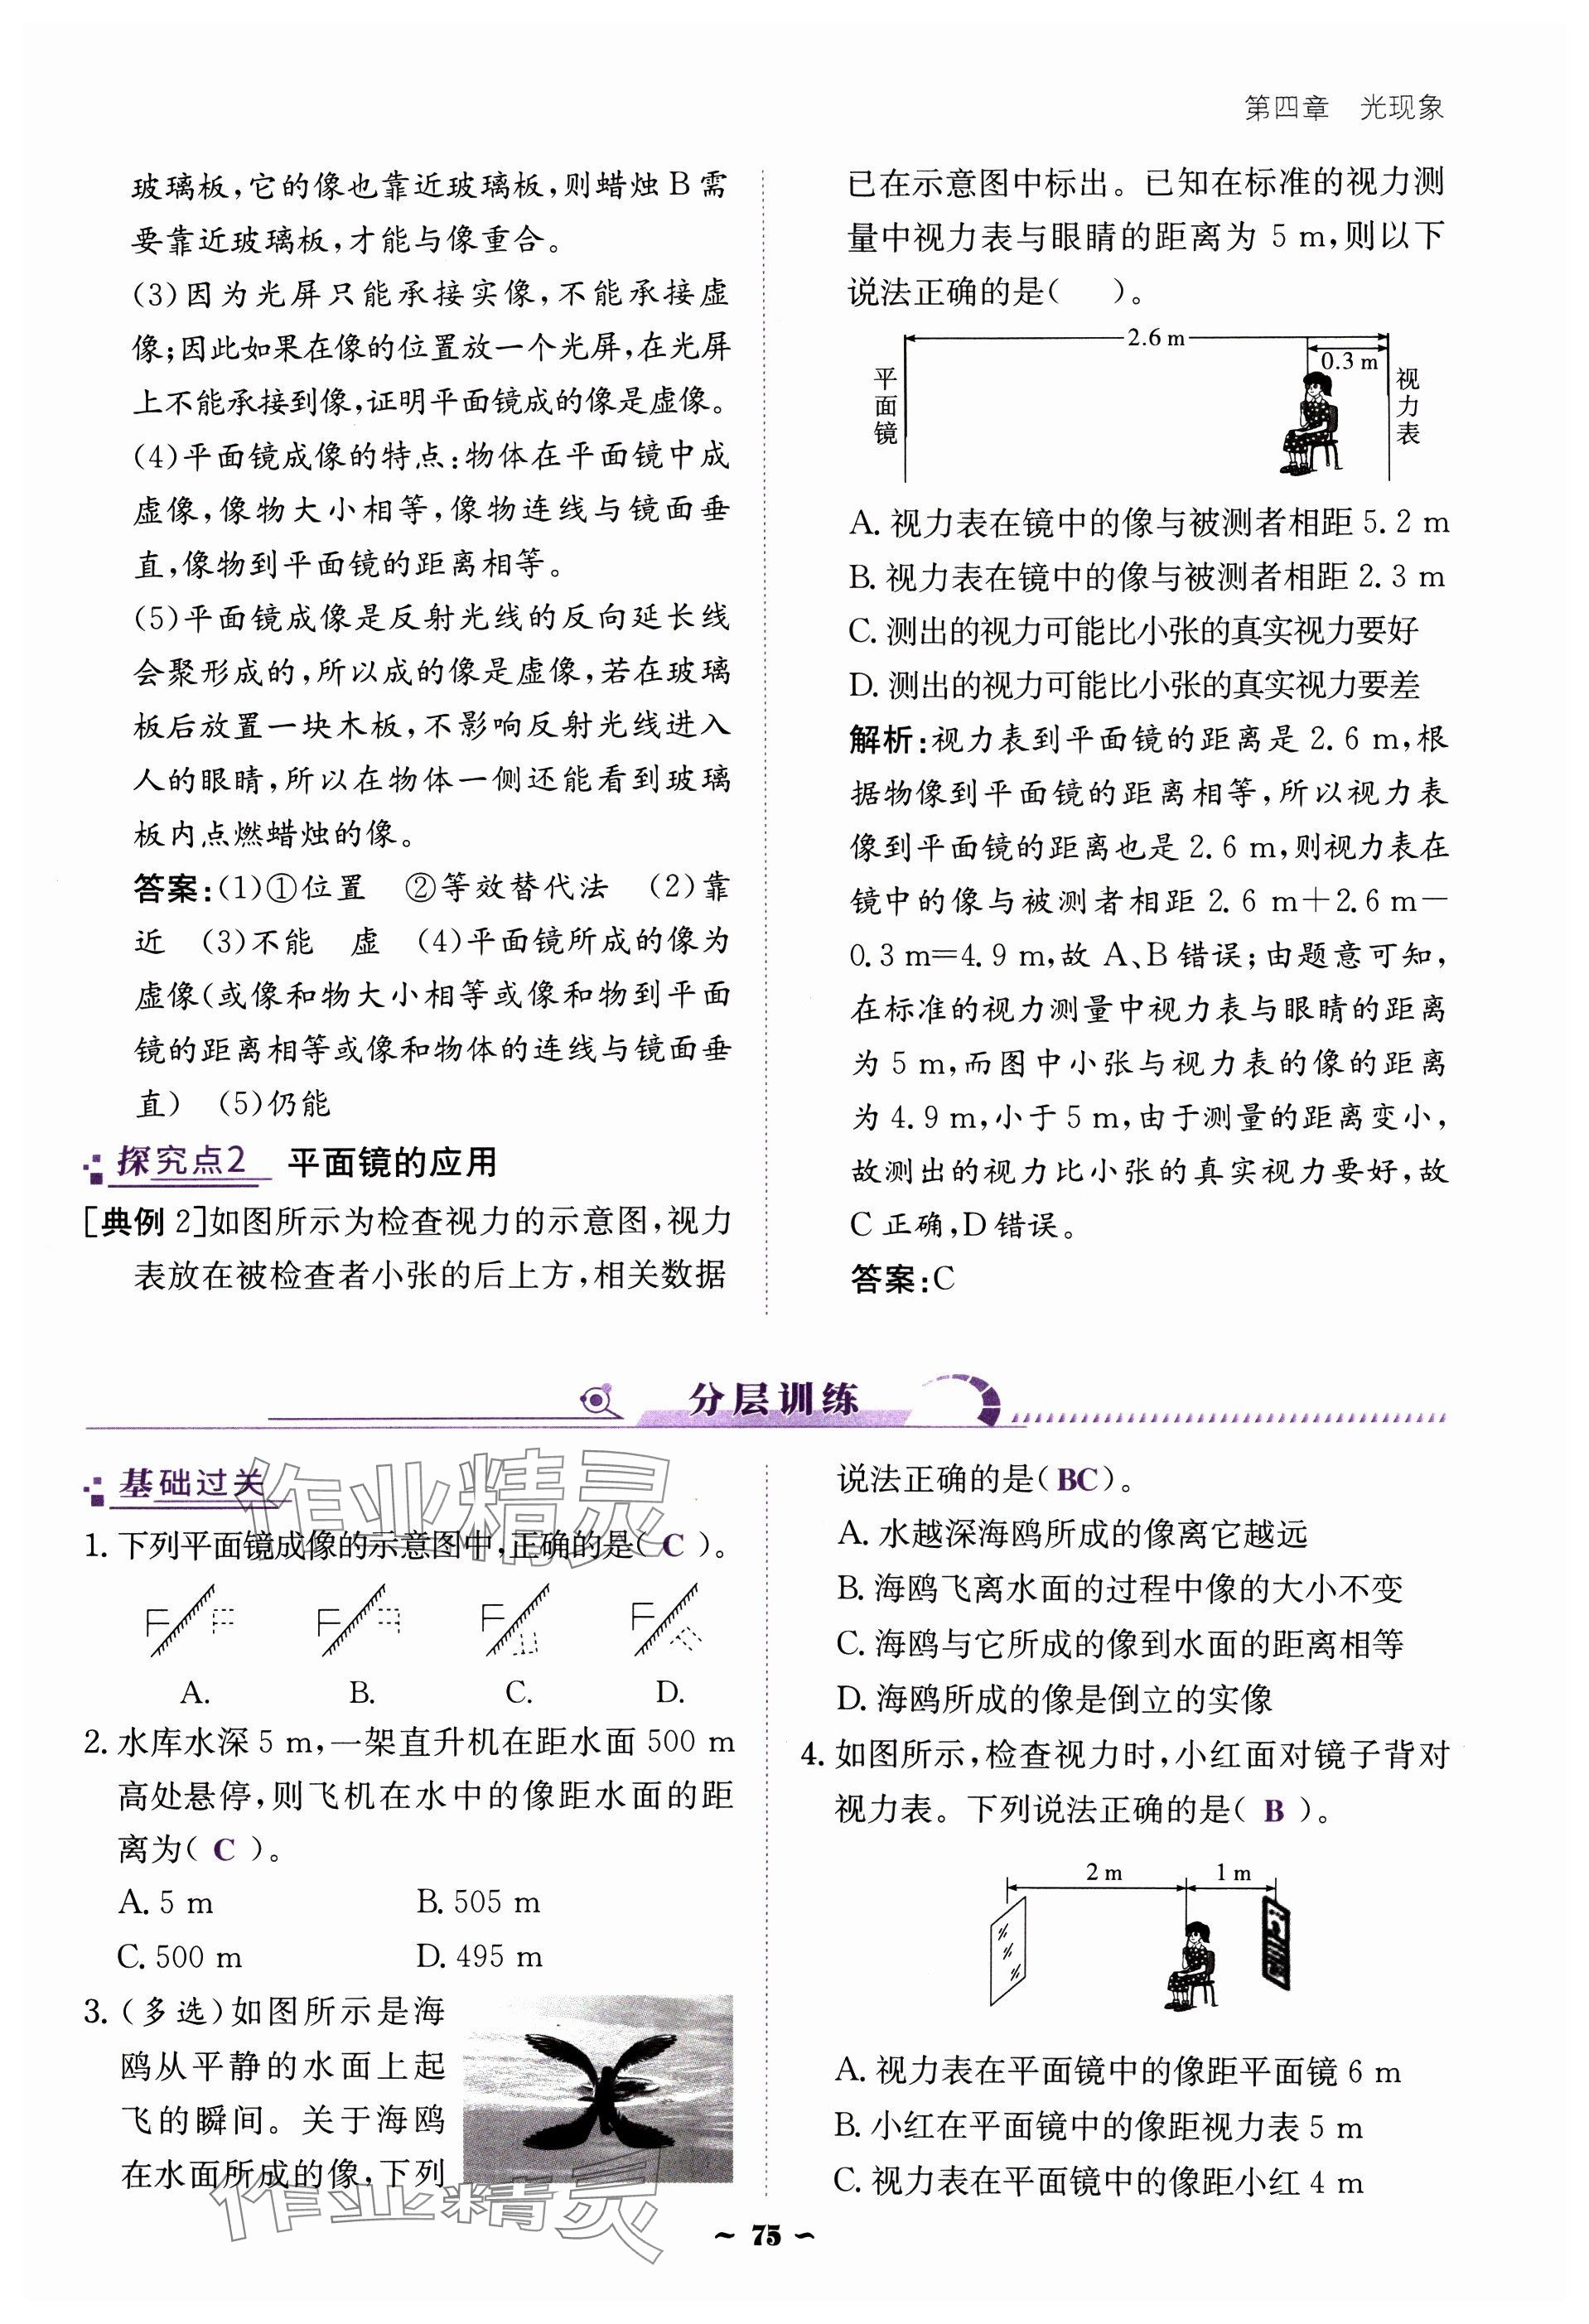 第四章 光现象
玻璃板,它的像也靠近玻璃板,则蜡烛B需
要靠近玻璃板,才能与像重合。
(3)因为光屏只能承接实像,不能承接虚
像;因此如果在像的位置放一个光屏,在光屏
上不能承接到像,证明平面镜成的像是虚像。
(4)平面镜成像的特点:物体在平面镜中成
虚像,像物大小相等,像物连线与镜面垂
直,像物到平面镜的距离相等。
(5)平面镜成像是反射光线的反向延长线
会聚形成的,所以成的像是虚像,若在玻璃
板后放置一块木板,不影响反射光线进入
人的眼睛,所以在物体一侧还能看到玻璃
板内点燃蜡烛的像。
答案:(1)①位置 ②等效替代法 (2)靠
近 (3)不能 虚 (4)平面镜所成的像为
虚像(或像和物大小相等或像和物到平面
镜的距离相等或像和物体的连线与镜面垂
直) (5)仍能
探究点2 平面镜的应用
[典例 2]如图所示为检查视力的示意图,视力
表放在被检查者小张的后上方,相关数据
已在示意图中标出。已知在标准的视力测
量中视力表与眼睛的距离为 5 m,则以下
说法正确的是( )。
2.6 m
0.3 m
平面镜
视力表
A. 视力表在镜中的像与被测者相距 5.2 m
B. 视力表在镜中的像与被测者相距 2.3 m
C. 测出的视力可能比小张的真实视力要好
D. 测出的视力可能比小张的真实视力要差
解析:视力表到平面镜的距离是 2.6 m,根
据物像到平面镜的距离相等,所以视力表
像到平面镜的距离也是 2.6 m,则视力表在
镜中的像与被测者相距 2.6 m+2.6 m-
0.3 m=4.9 m,故 A、B 错误;由题意可知,
在标准的视力测量中视力表与眼睛的距离
为 5 m,而图中小张与视力表的像的距离
为 4.9 m,小于 5 m,由于测量的距离变小,
故测出的视力比小张的真实视力要好,故
C 正确,D 错误。
答案:C
分层训练
基础过关
1. 下列平面镜成像的示意图中,正确的是( C )。
A. B. C. D.
2. 水库水深 5 m,一架直升机在距水面 500 m
高处悬停,则飞机在水中的像距水面的距
离为( C )。
A. 5 m B. 505 m
C. 500 m D. 495 m
3. (多选)如图所示是海
鸥从平静的水面上起
飞的瞬间。关于海鸥
在水面所成的像,下列
说法正确的是( BC )。
A. 水越深海鸥所成的像离它越远
B. 海鸥飞离水面的过程中像的大小不变
C. 海鸥与它所成的像到水面的距离相等
D. 海鸥所成的像是倒立的实像
4. 如图所示,检查视力时,小红面对镜子背对
视力表。下列说法正确的是( B )。
2 m 1 m
A. 视力表在平面镜中的像距平面镜 6 m
B. 小红在平面镜中的像距视力表 5 m
C. 视力表在平面镜中的像距小红 4 m
~ 75 ~
作业精灵
作业精灵